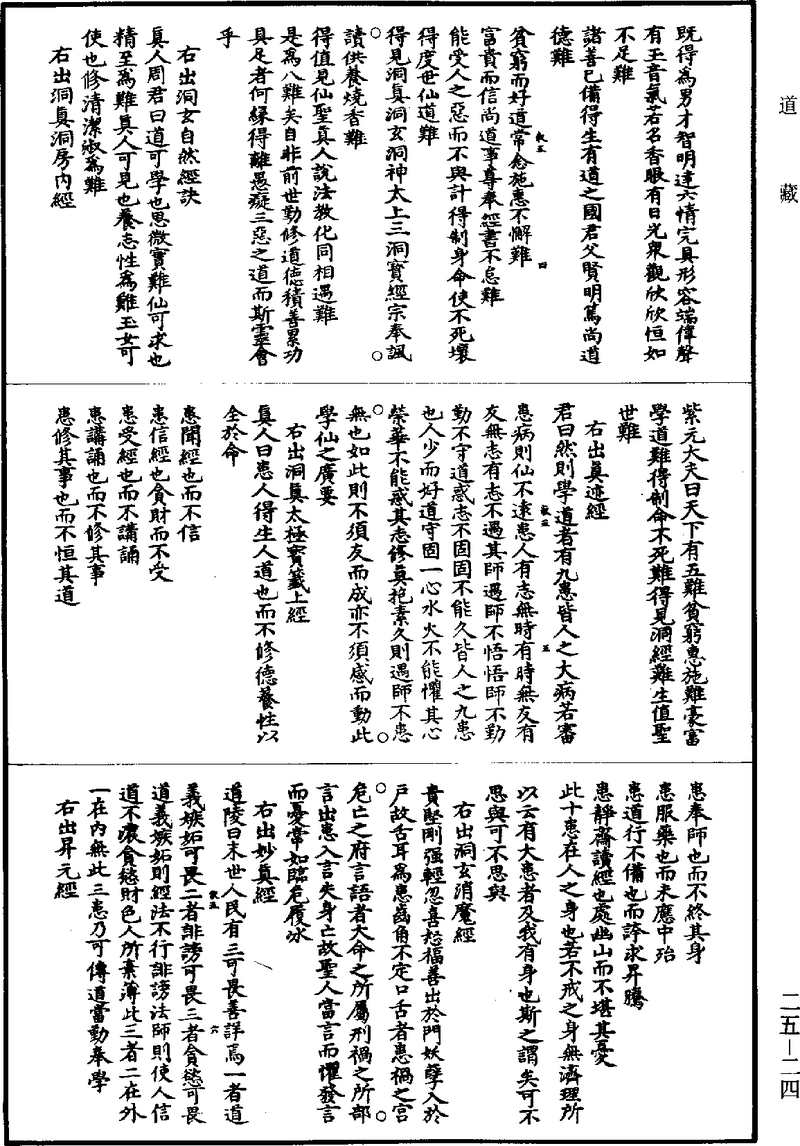 道藏
既得為男才智明達六情完具形容端偉聲
有玉音氣若名香眼有日光衆觀欣欣恒如
不足難
諸善已備得生有道之國君父賢明篤尚道
德難
貧窮而好道常念施惠不懈難
富貴而信尚道事尊奉經書不怠難
能受人之惡而不與計得制身命使不死壞
得度世仙道難
得見洞真洞玄洞神太上三洞寶經宗奉諷
讀供養燒香難
得值見仙聖真人說法教化同相遇難
是為八難矣自非前世勤修道德積善累功
具足者何緣得離愚癡三惡之道而斯靈會
乎
右出洞玄自然經訣
真人周君曰道可學也思微實難仙可求也
精至為難真人可見也養志性為難玉女可
使也修清潔淑為難
右出洞真洞房內經
紫元大夫曰天下有五難貧窮惠施難豪富
學道難得制命不死難得見洞經難生值聖
世難
右出真迹經
君曰然則學道者有九患皆人之大病若審
患病則仙不遠患人有志無時有時無友有
友無志有志不遇其師遇師不悟悟師不勤
勤不守道惑志不固固不能久皆人之九患
也人少而好道守固一心水火不能懼其心
榮華不能惑其志修真抱素久則遇師不患
無也如此則不須友而成亦不須感而動此
學仙之廣要
右出洞真太極寶籙上經
真人曰患人得生人道也而不修德養性以
全於命
患聞經也而不信
患信經也貪財而不受
患受經也而不講誦
患講誦也而不修其事
患修其事也而不恒其道
患奉師也而不終其身
患服藥也而未應中殆
患道行不備也而誇求昇騰
患靜齋讀經也處幽山而不堪其憂
此十患在人之身也若不戒之身無濟理所
以云有大患者及我有身也斯之謂矣可不
思與可不思與
右出洞玄消魔經
貴堅剛强輕忽喜怒福善出於門妖孽入於
戶故舌耳為患齒角不定口舌者患禍之宮
危亡之府言語者大命之所屬刑禍之所部
言出患入言失身亡故聖人當言而懼發言
而憂常如臨危履冰
右出妙真經
道陵曰末世人民有三可畏善詳焉一者道
義嫉妬可畏二者誹謗可畏三者貪慾可畏
道義嫉妬則經法不行誹謗法師則使人信
道不濃貪慾財色人所素薄此三者二在外
一在內無此三患乃可傳道當勤奉學
右出昇元經
二五—二四